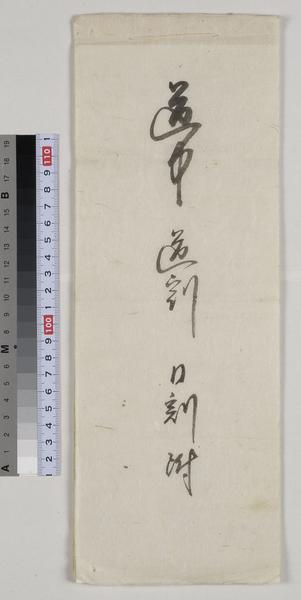 道中 道割 日刻附
A 1 2 3 4 5 6 M 8 9 10 11 12 13 14 15 B 17 18 19
2 3 4 5 6 7 8 9 100 1 2 3 4 5 6 7 8 9 110 1